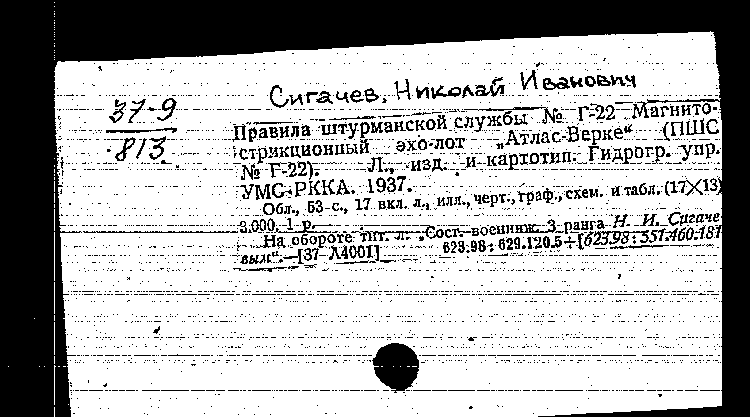 Сигачев, Николай Иванович
37-9
813
Правила штурманской службы № Г-22 Магнито-
стрикционный эхо-лот „Атлас-Верке“ (ПШС
№ Г-22). Л., изд. и картотип. Гидрогр. упр.
УМС РККА. 1937.
Обл., 53 с., 17 вкл. л., илл., черт., граф., схем. и табл. (17×13)
3.000. 1 р.
На обороте тит. л.: „Сост. военинж. 3 ранга Н. И. Сигаче
вым“.—[37-Л4001] 623.98 : 629.120.5+[623.98 : 551.460.187